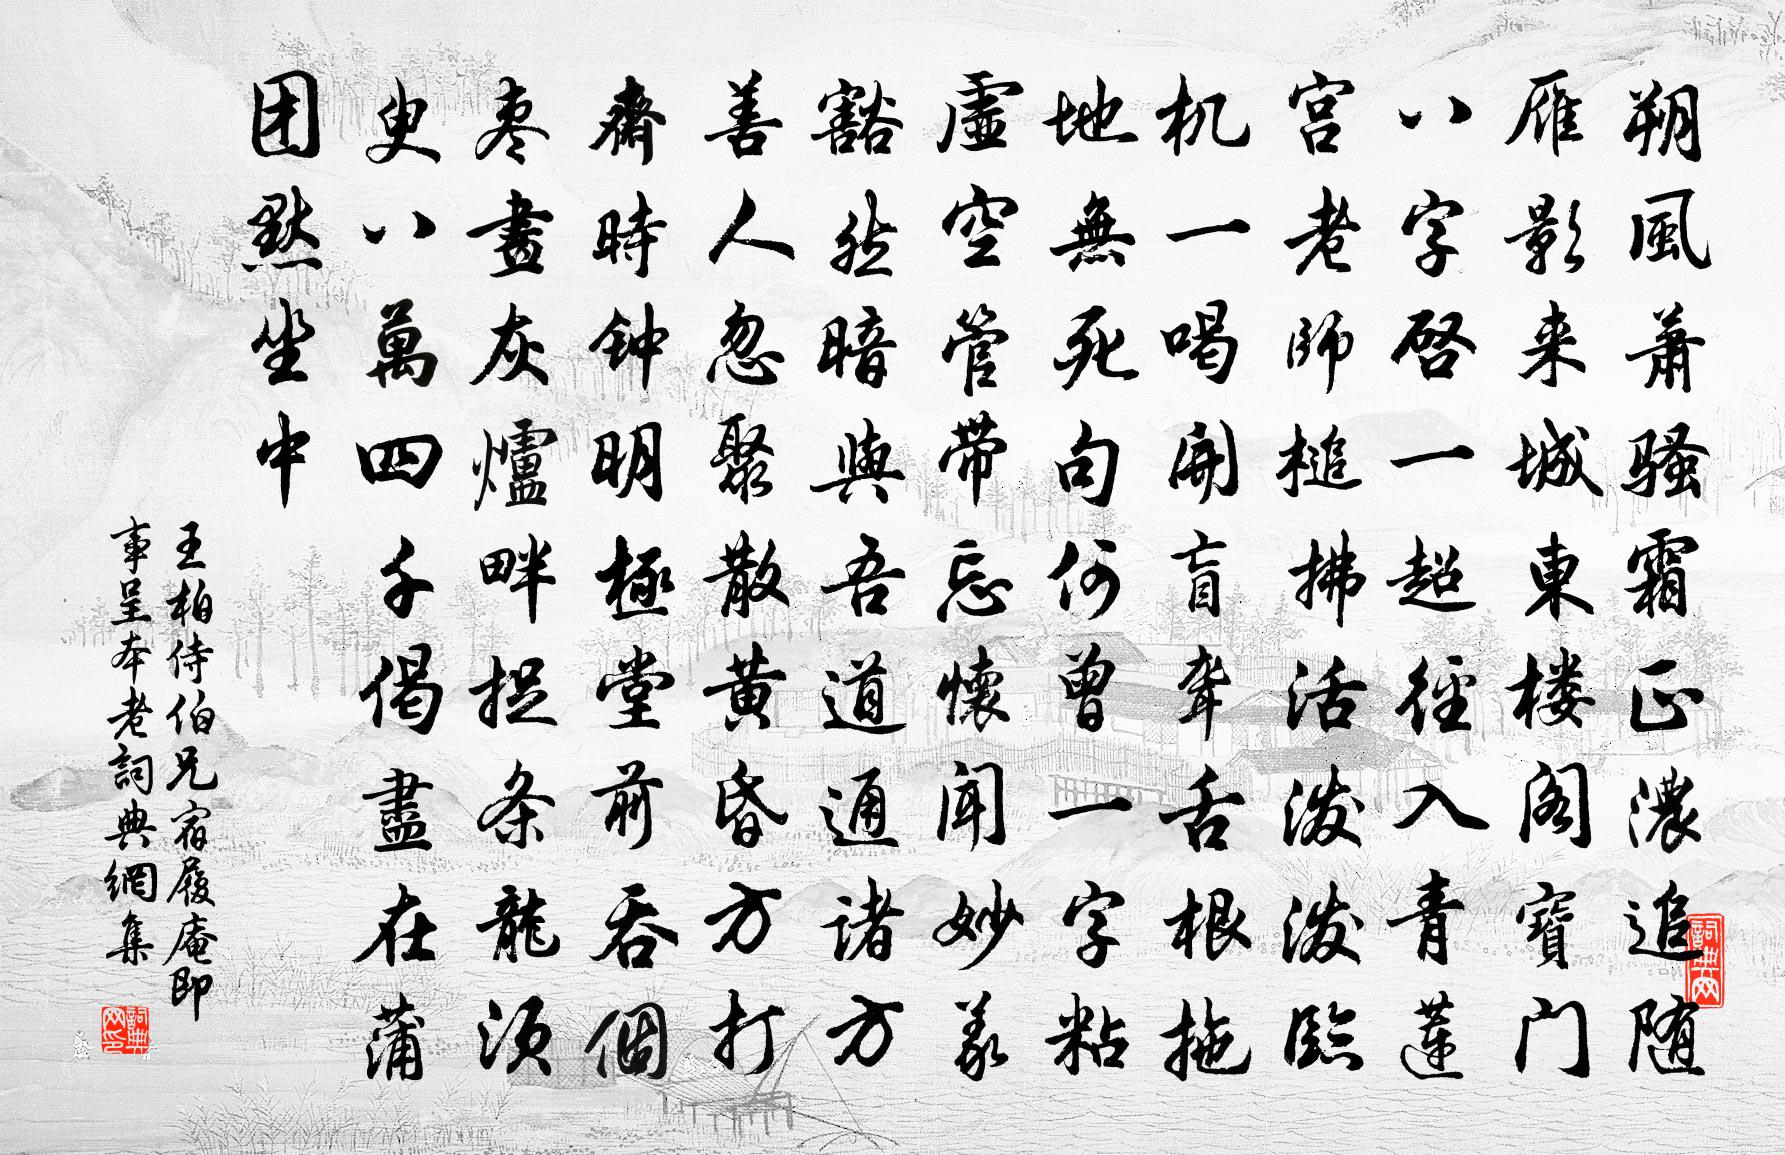 朔風萧骚霜正濃追随
雁影来城東楼阁寶门
八字啓一超徑入青蓮
宫老師槌拂活泼泼臨
机一喝開盲聋舌根拖
地無死句何曾一字粘
虚空管带忘懷聞妙義
豁然暗與吾道通诸方
善人忽聚散黄昏方打
齋時钟明極堂前吞個
枣晝灰爐畔捉条龍须
臾八萬四千偈盡在蒲
团默坐中
王柏侍伯兄宿履庵即
事呈本老詞典網集
詞典网
詞典网印